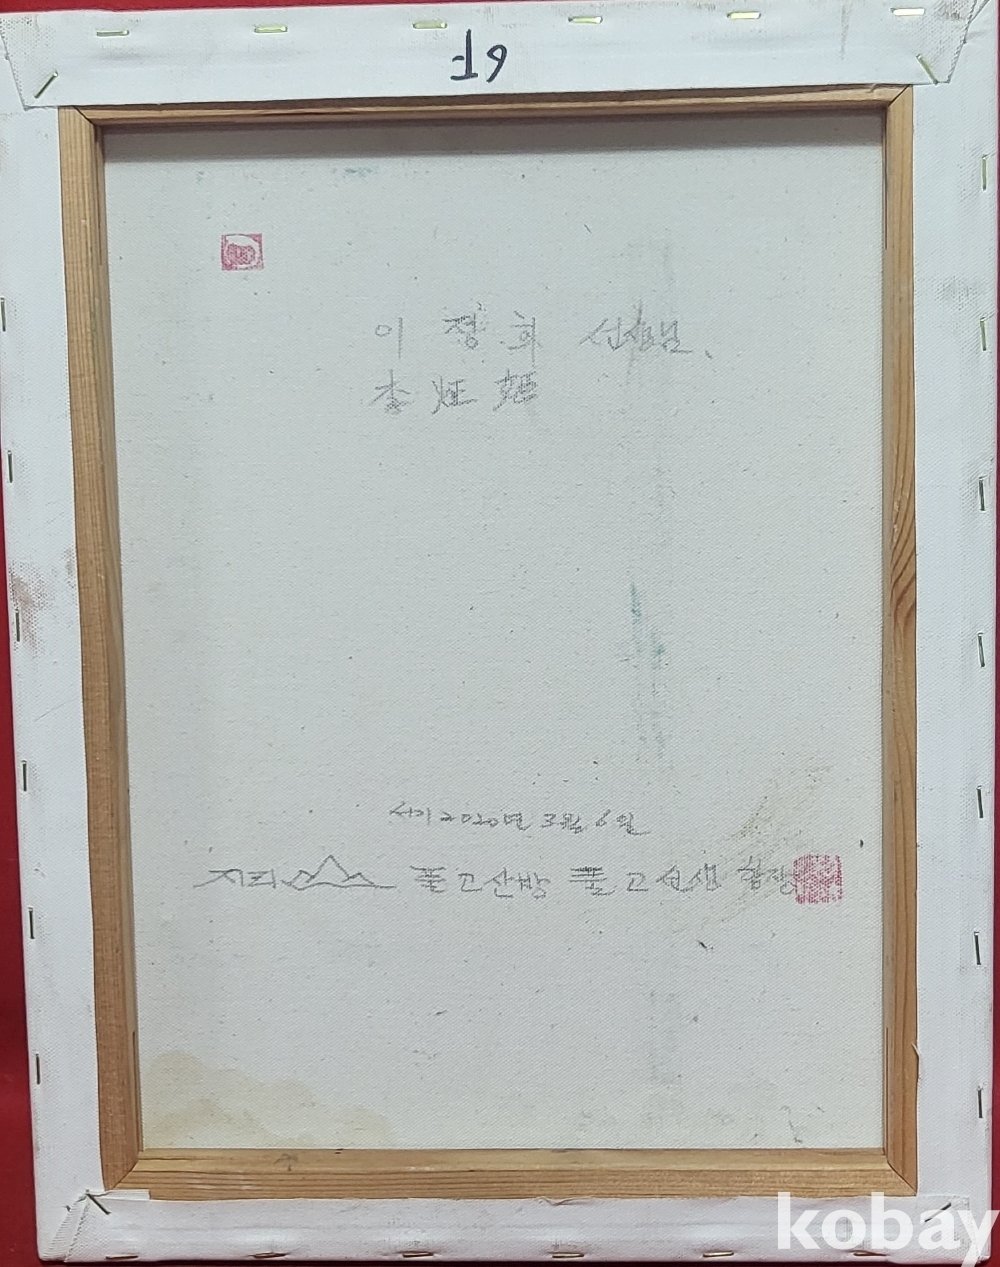 이 정 희 선생님、
李 炡 姬
서기 2020년 3월 6일
지리산 풀고산방 풀고선생 합장
kobay